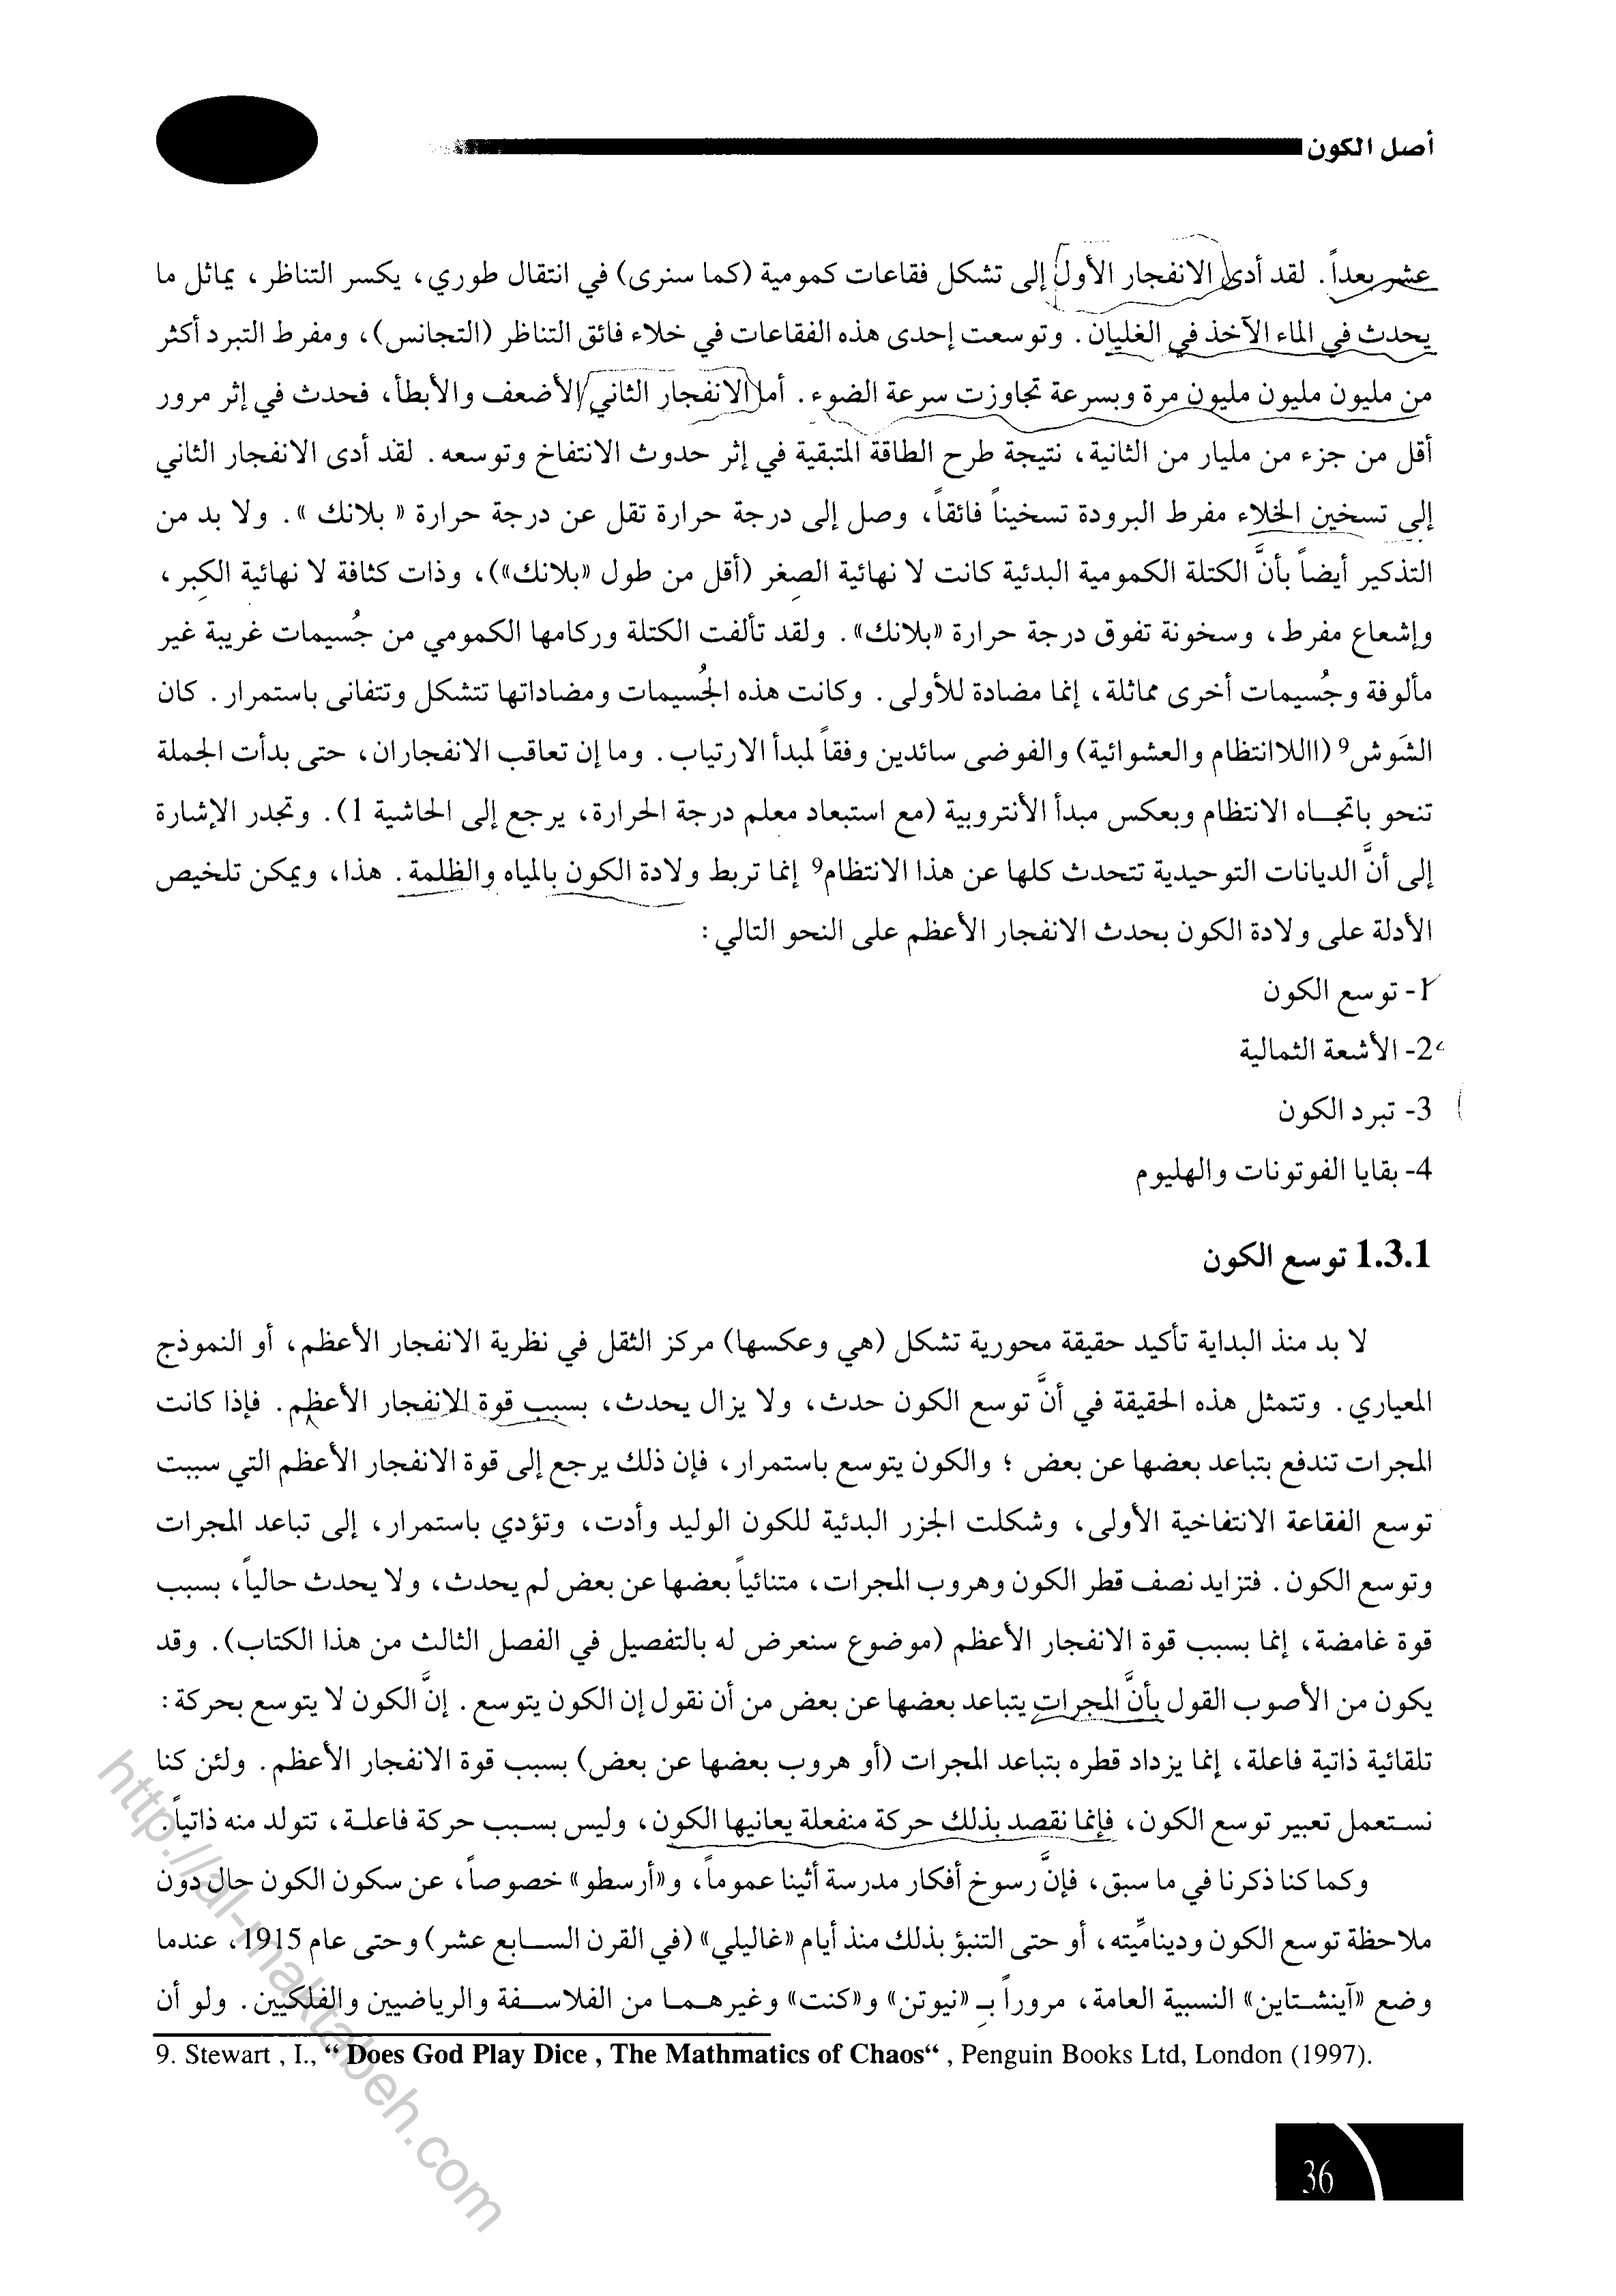 أصل الكون
عشر بعداً. لقد أدى الانفجار الأول إلى تشكل فقاعات كمومية (كما سنرى) في انتقال طوري، يكسر التناظر، يماثل ما
يحدث في الماء الآخذ في الغليان. وتوسعت إحدى هذه الفقاعات في خلاء فائق التناظر (التجانس)، ومفرط التبرد أكثر
من مليون مليون مليون مرة وبسرعة تجاوزت سرعة الضوء. أما الانفجار الثاني الأضعف والأبطأ، فحدث في إثر مرور
أقل من جزء من مليار من الثانية، نتيجة طرح الطاقة المتبقية في إثر حدوث الانتفاخ وتوسعه. لقد أدى الانفجار الثاني
إلى تسخين الخلاء مفرط البرودة تسخيناً فائقاً، وصل إلى درجة حرارة تقل عن درجة حرارة « بلانك ». ولا بد من
التذكير أيضاً بأنَّ الكتلة الكمومية البدئية كانت لا نهائية الصِغر (أقل من طول «بلانك»)، وذات كثافة لا نهائية الكِبر،
وإشعاع مفرط، وسخونة تفوق درجة حرارة «بلانك». ولقد تألفت الكتلة وركامها الكمومي من جُسيمات غريبة غير
مألوفة وجُسيمات أخرى مماثلة، إنما مضادة للأولى. وكانت هذه الجُسيمات ومضاداتها تتشكل وتتفانى باستمرار. كان
الشَوش9 (االلاانتظام والعشوائية) والفوضى سائدين وفقاً لمبدأ الارتياب. وما إن تعاقب الانفجاران، حتى بدأت الجملة
تنحو باتجــاه الانتظام وبعكس مبدأ الأنتروبية (مع استبعاد معلم درجة الحرارة، يرجع إلى الحاشية 1). وتجدر الإشارة
إلى أنَّ الديانات التوحيدية تتحدث كلها عن هذا الانتظام9 إنما تربط ولادة الكون بالمياه والظلمة. هذا، ويمكن تلخيص
الأدلة على ولادة الكون بحدث الانفجار الأعظم على النحو التالي:
1- توسع الكون
2- الأشعة الثمالية
3- تبرد الكون
4- بقايا الفوتونات والهليوم
1.3.1 توسع الكون
لا بد منذ البداية تأكيد حقيقة محورية تشكل (هي وعكسها) مركز الثقل في نظرية الانفجار الأعظم، أو النموذج
المعياري. وتتمثل هذه الحقيقة في أنَّ توسع الكون حدث، ولا يزال يحدث، بسبب قوة الانفجار الأعظم. فإذا كانت
المجرات تندفع بتباعد بعضها عن بعض ؛ والكون يتوسع باستمرار، فإن ذلك يرجع إلى قوة الانفجار الأعظم التي سببت
توسع الفقاعة الانتفاخية الأولى، وشكلت الجزر البدئية للكون الوليد وأدت، وتؤدي باستمرار، إلى تباعد المجرات
وتوسع الكون. فتزايد نصف قطر الكون وهروب المجرات، متنائياً بعضها عن بعض لم يحدث، ولا يحدث حالياً، بسبب
قوة غامضة، إنما بسبب قوة الانفجار الأعظم (موضوع سنعرض له بالتفصيل في الفصل الثالث من هذا الكتاب). وقد
يكون من الأصوب القول بأنَّ المجرات يتباعد بعضها عن بعض من أن نقول إن الكون يتوسع. إنَّ الكون لا يتوسع بحركة:
تلقائية ذاتية فاعلة، إنما يزداد قطره بتباعد المجرات (أو هروب بعضها عن بعض) بسبب قوة الانفجار الأعظم. ولئن كنا
نستعمل تعبير توسع الكون، فإنما نقصد بذلك حركة منفعلة يعانيها الكون، وليس بسبب حركة فاعلة، تتولد منه ذاتياً.
وكما كنا ذكرنا في ما سبق، فإنَّ رسوخ أفكار مدرسة أثينا عموماً، و«أرسطو» خصوصاً، عن سكون الكون حال دون
ملاحظة توسع الكون وديناميّته، أو حتى التنبؤ بذلك منذ أيام «غاليلي» (في القرن الســابع عشر) وحتى عام 1915، عندما
وضع «آينشتاين» النسبية العامة، مروراً بـ «نيوتن» و«كنت» وغيرهمـا من الفلاسـفة والرياضيين والفلكيين. ولو أن
9. Stewart , I., “ Does God Play Dice , The Mathmatics of Chaos“ , Penguin Books Ltd, London (1997).
36
http://al-maktabeh.com